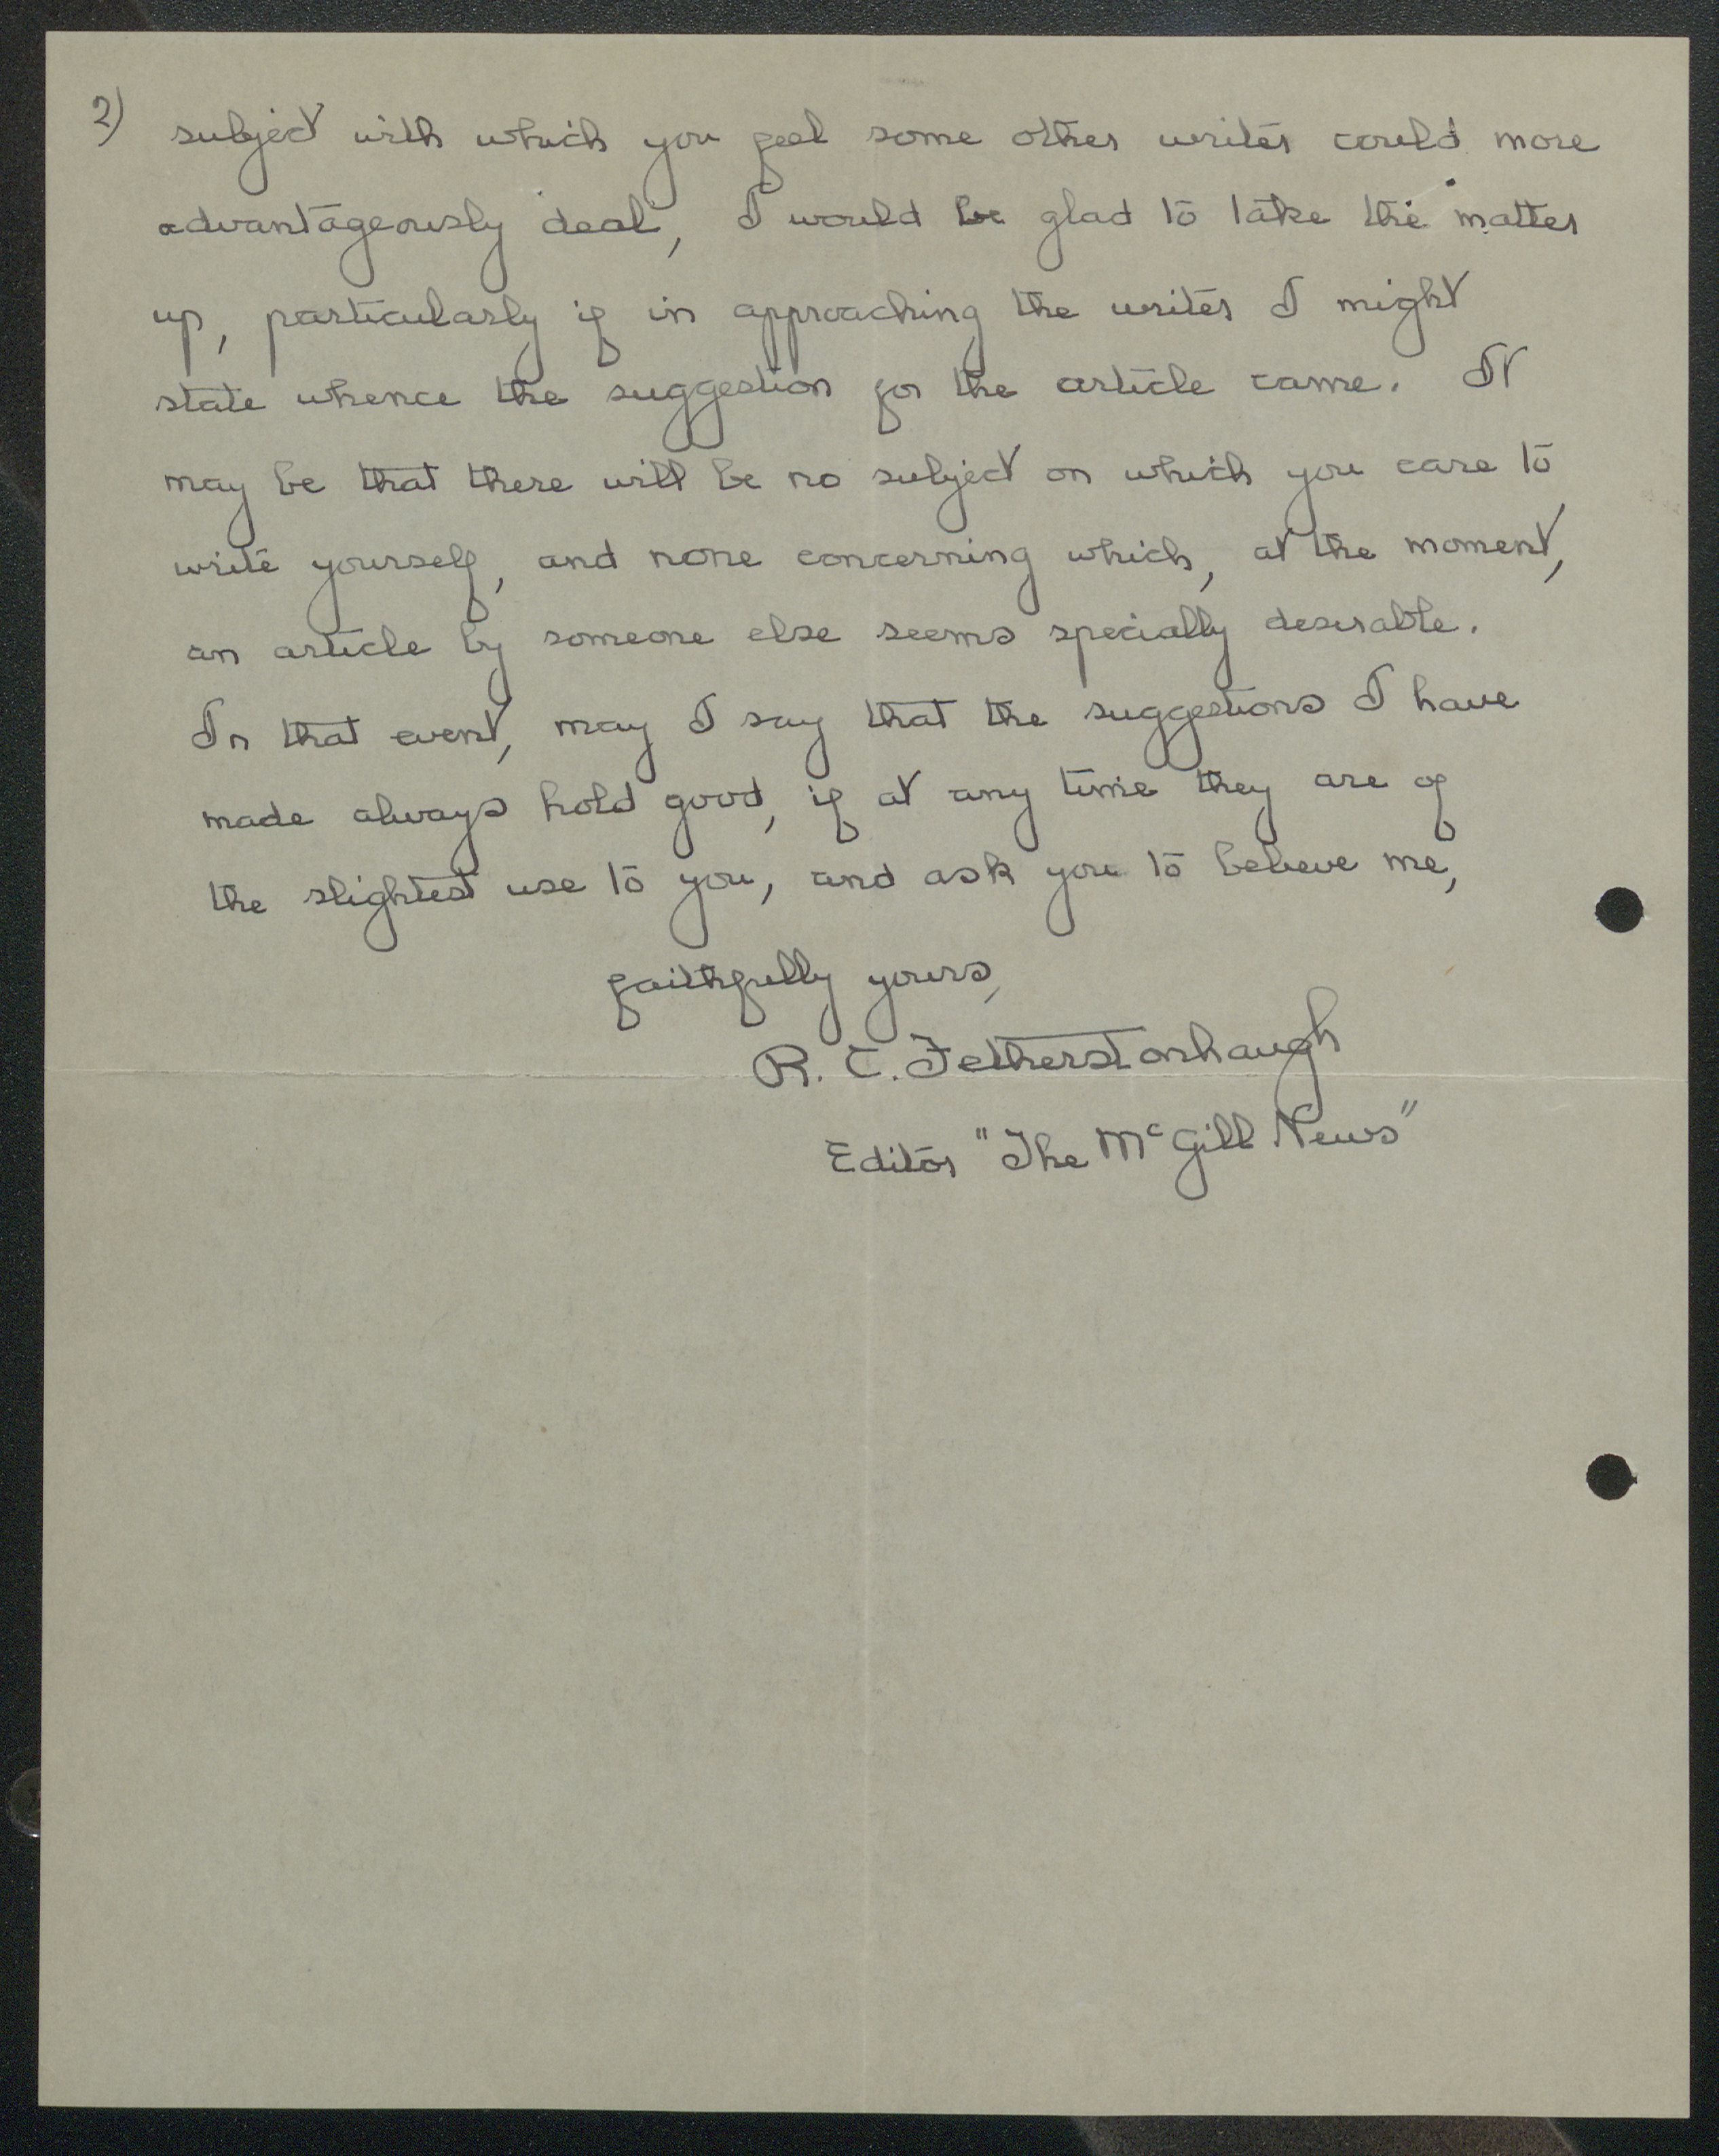 2) subject with which you feel some other writer could more
advantageously deal, I would be glad to take the matter
up, particularly if in approaching the writer I might
state whence the suggestion for the article came. It
may be that there will be no subject on which you care to
write yourself, and none concerning which, at the moment,
an article by someone else seems specially desirable.
In that event, may I say that the suggestions I have
made always hold good, if at any time they are of
the slightest use to you, and ask you to believe me,
faithfully yours,
R. C. Fetherstonhaugh
Editor "The McGill News"